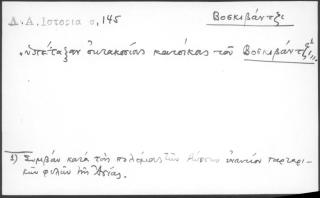 Δ.Α.Ιστορία σ,145 Βοσκιβάντζι
"ὑπέταξαν ὀκτακοσίας κατοίκας τοῦ Βοσκιβάντζι¹,,,
1) Συμβάν κατά τούς πολέμους τῶν Ρώσσων ἐναντίον ταρταρι-
κῶν φυλῶν τῆς Ἀσίας.